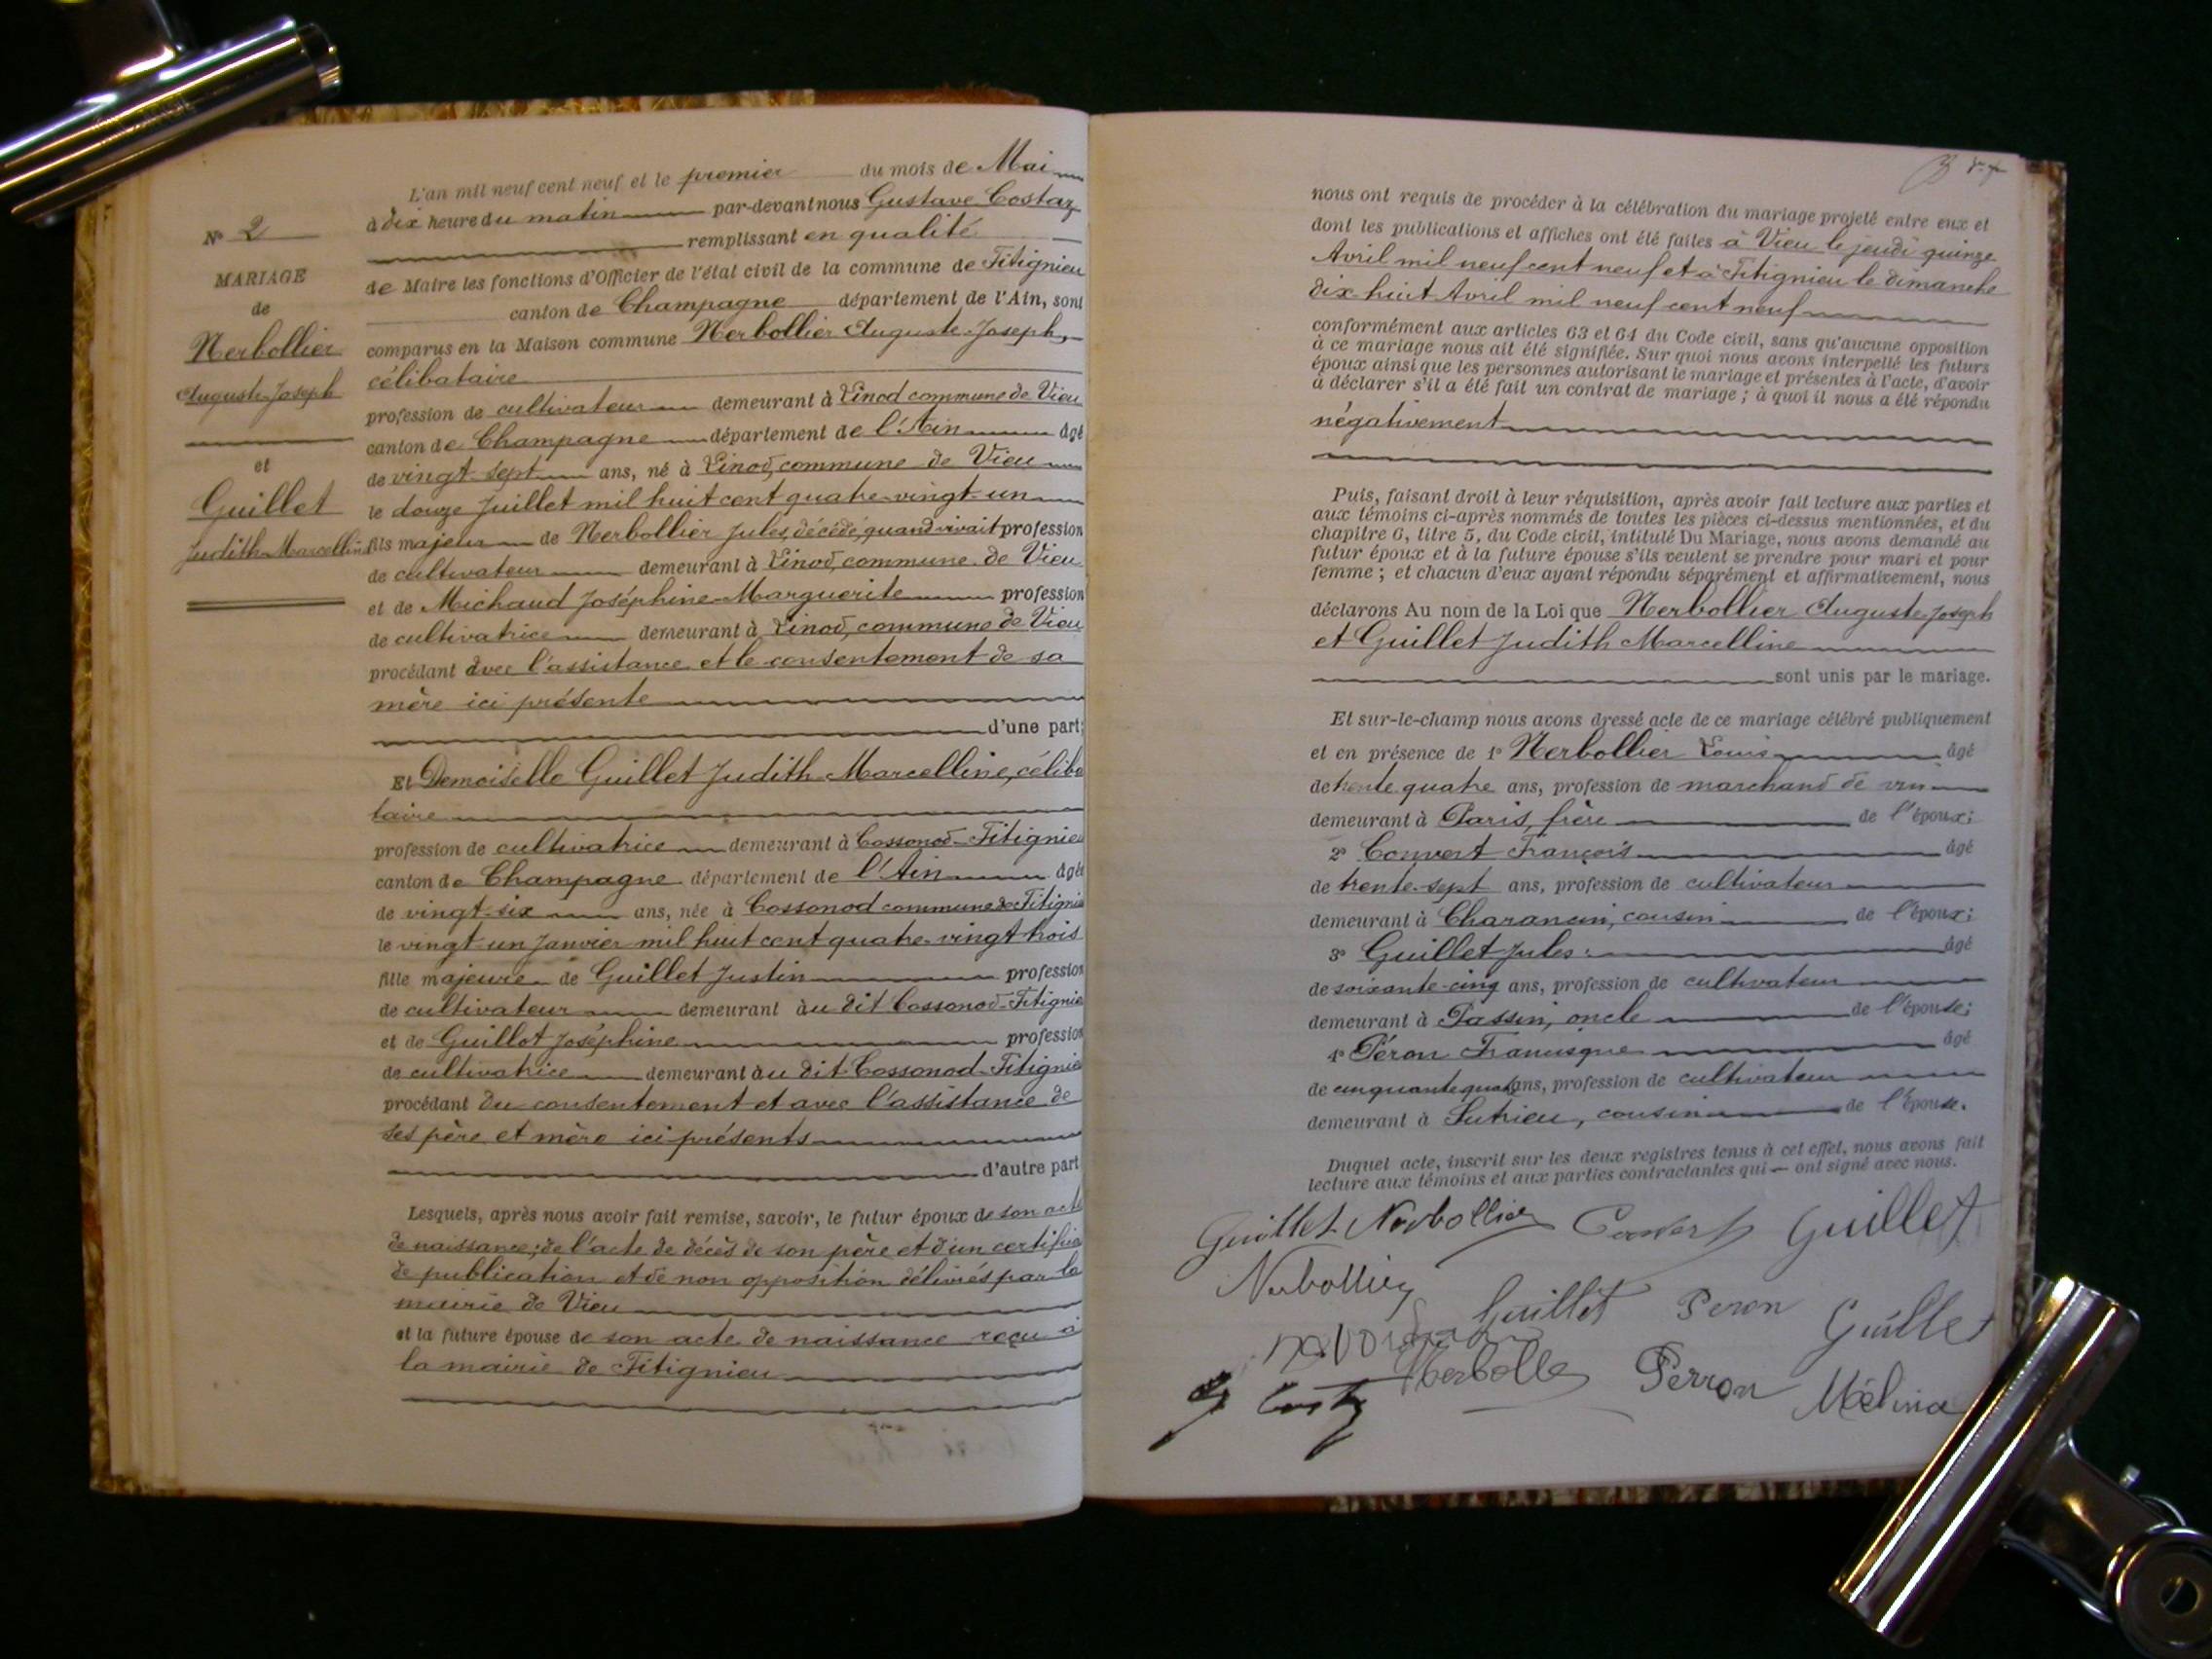 N° 2
MARIAGE
de
Nerbollier
Auguste-Joseph
et
Guillet
Judith-Marcelline
L'an mil neuf cent neuf et le premier du mois de Mai
à dix heure du matin par-devant nous Gustave Costaz
remplissant en qualité
de Maire les fonctions d'Officier de l'état civil de la commune de Fitignieu
canton de Champagne département de l'Ain, sont
comparus en la Maison commune Nerbollier Auguste-Joseph,
célibataire
profession de cultivateur demeurant à Linod commune de Vieu
canton de Champagne département de l'Ain âgé
de vingt-sept ans, né à Linod, commune de Vieu
le douze Juillet mil huit cent quatre-vingt-un
fils majeur de Nerbollier Jules, décédé, quand vivait profession
de cultivateur demeurant à Linod, commune de Vieu
et de Michaud Joséphine-Marguerite profession
de cultivatrice demeurant à Linod, commune de Vieu
procédant avec l'assistance et le consentement de sa
mère ici présente
d'une part;
Et Demoiselle Guillet Judith-Marcelline, céliba
taire
profession de cultivatrice demeurant à Cossonod-Fitignieu
canton de Champagne département de l'Ain âgée
de vingt-six ans, née à Cossonod commune de Fitignieu
le vingt-un Janvier mil huit cent quatre-vingt trois
fille majeure de Guillet Justin profession
de cultivateur demeurant àu dit Cossonod-Fitignieu
et de Guillot Joséphine profession
de cultivatrice demeurant àu dit Cossonod-Fitignieu
procédant du consentement et avec l'assistance de
ses père et mère ici présents
d'autre part
Lesquels, après nous avoir fait remise, savoir, le futur époux de son acte
de naissance; de l'acte de décès de son père et d'un certificat
de publication et de non opposition délivrés par la
mairie de Vieu
et la future épouse de son acte de naissance reçu à
la mairie de Fitignieu
nous ont requis de procéder à la célébration du mariage projeté entre eux et
dont les publications et affiches ont été faites à Vieu le jeudi quinze
Avril mil neuf cent neuf et à Fitignieu le dimanche
dix huit Avril mil neuf cent neuf
conformément aux articles 63 et 64 du Code civil, sans qu'aucune opposition
à ce mariage nous ait été signifiée. Sur quoi nous avons interpellé les futurs
époux ainsi que les personnes autorisant le mariage et présentes à l'acte, d'avoir
à déclarer s'il a été fait un contrat de mariage; à quoi il nous a été répondu
négativement
Puis, faisant droit à leur réquisition, après avoir fait lecture aux parties et
aux témoins ci-après nommés de toutes les pièces ci-dessus mentionnées, et du
chapitre 6, titre 5, du Code civil, intitulé Du Mariage, nous avons demandé au
futur époux et à la future épouse s'ils veulent se prendre pour mari et pour
femme; et chacun d'eux ayant répondu séparément et affirmativement, nous
déclarons Au nom de la Loi que Nerbollier Auguste-Joseph
et Guillet Judith Marcelline
sont unis par le mariage.
Et sur-le-champ nous avons dressé acte de ce mariage célébré publiquement
et en présence de 1° Nerbollier Louis âgé
de trente quatre ans, profession de marchand de vin
demeurant à Paris, frère de l'époux;
2° Convert François âgé
de trente-sept ans, profession de cultivateur
demeurant à Charancin, cousin de l'époux;
3° Guillet Jules âgé
de soixante-cinq ans, profession de cultivateur
demeurant à Passin, oncle de l'épouse;
4° Péron Francisque âgé
de cinquante quatre ans, profession de cultivateur
demeurant à Sutrieu, cousin de l'épouse.
Duquel acte, inscrit sur les deux registres tenus à cet effet, nous avons fait
lecture aux témoins et aux parties contractantes qui ont signé avec nous.
Guillet Nerbollier Convert Guillet
Nerbollier
Guillet Peron Guillet
Nerbollie Perron Mélina
G Costaz